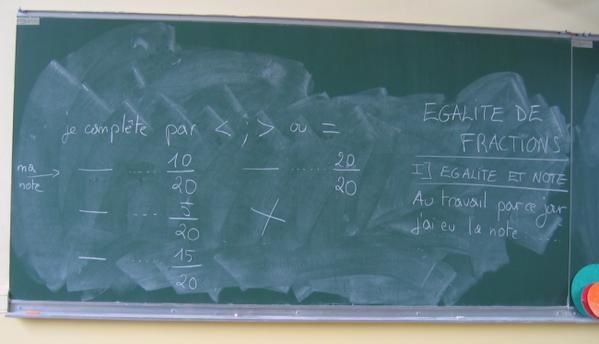 je complète par < ; > ou =
ma note → — ..... 10/20 — ...... 20/20
— .... 5/20
— .... 15/20
EGALITE DE
FRACTIONS
I] EGALITE ET NOTE
Au travail par ce jour
j'ai eu la note .....